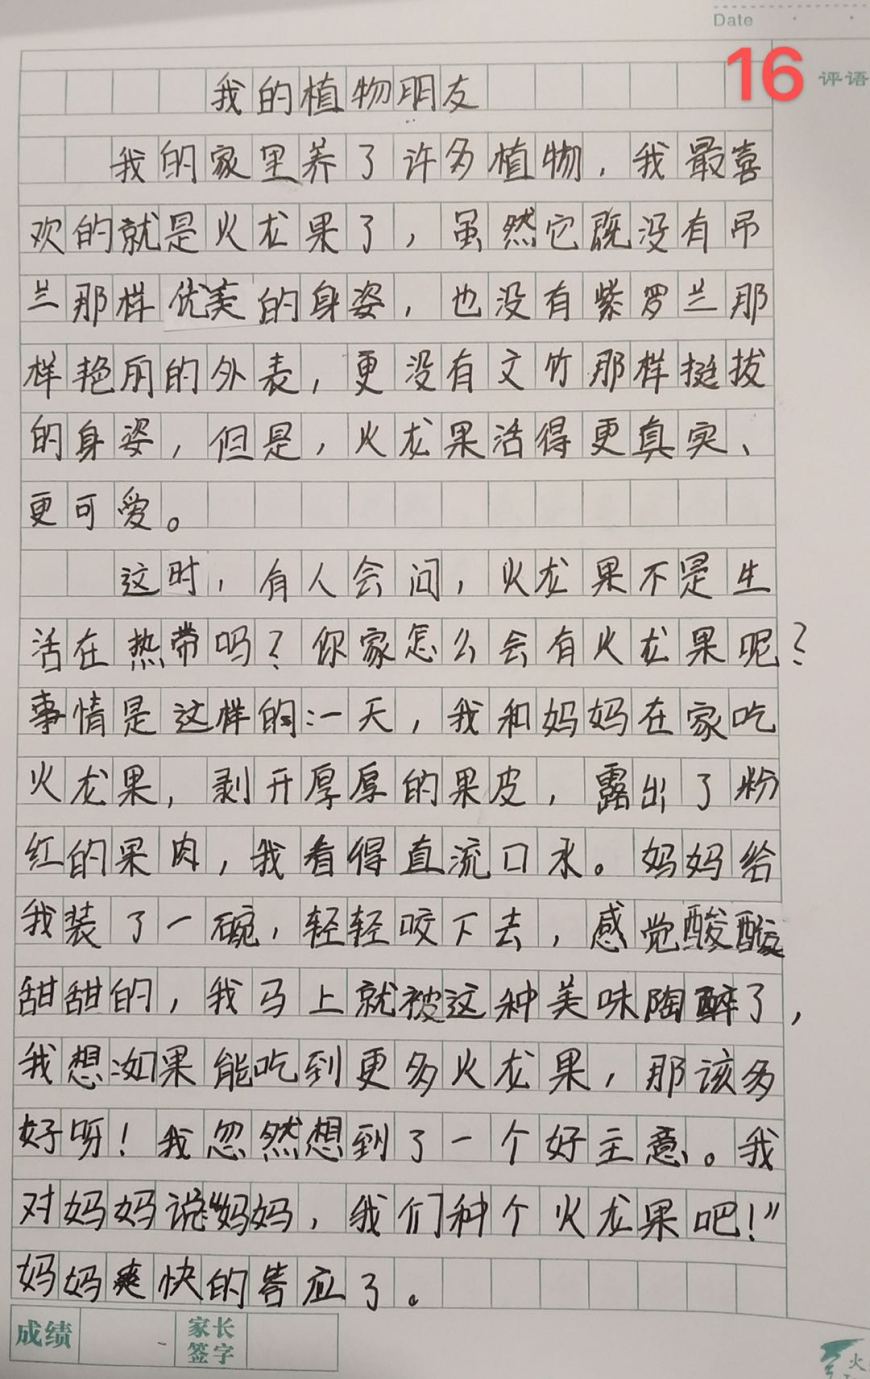 Date
16
评语
我的植物朋友
我的家里养了许多植物，我最喜
欢的就是火龙果了，虽然它既没有吊
兰那样优美的身姿，也没有紫罗兰那
样艳丽的外表，更没有文竹那样挺拔
的身姿，但是，火龙果活得更真实、
更可爱。
这时，有人会问，火龙果不是生
活在热带吗？你家怎么会有火龙果呢？
事情是这样的：一天，我和妈妈在家吃
火龙果，剥开厚厚的果皮，露出了粉
红的果肉，我看得直流口水。妈妈给
我装了一碗，轻轻咬下去，感觉酸酸
甜甜的，我马上就被这种美味陶醉了，
我想：如果能吃到更多火龙果，那该多
好呀！我忽然想到了一个好主意。我
对妈妈说“妈妈，我们种个火龙果吧！”
妈妈爽快的答应了。
成绩 家长签字
火